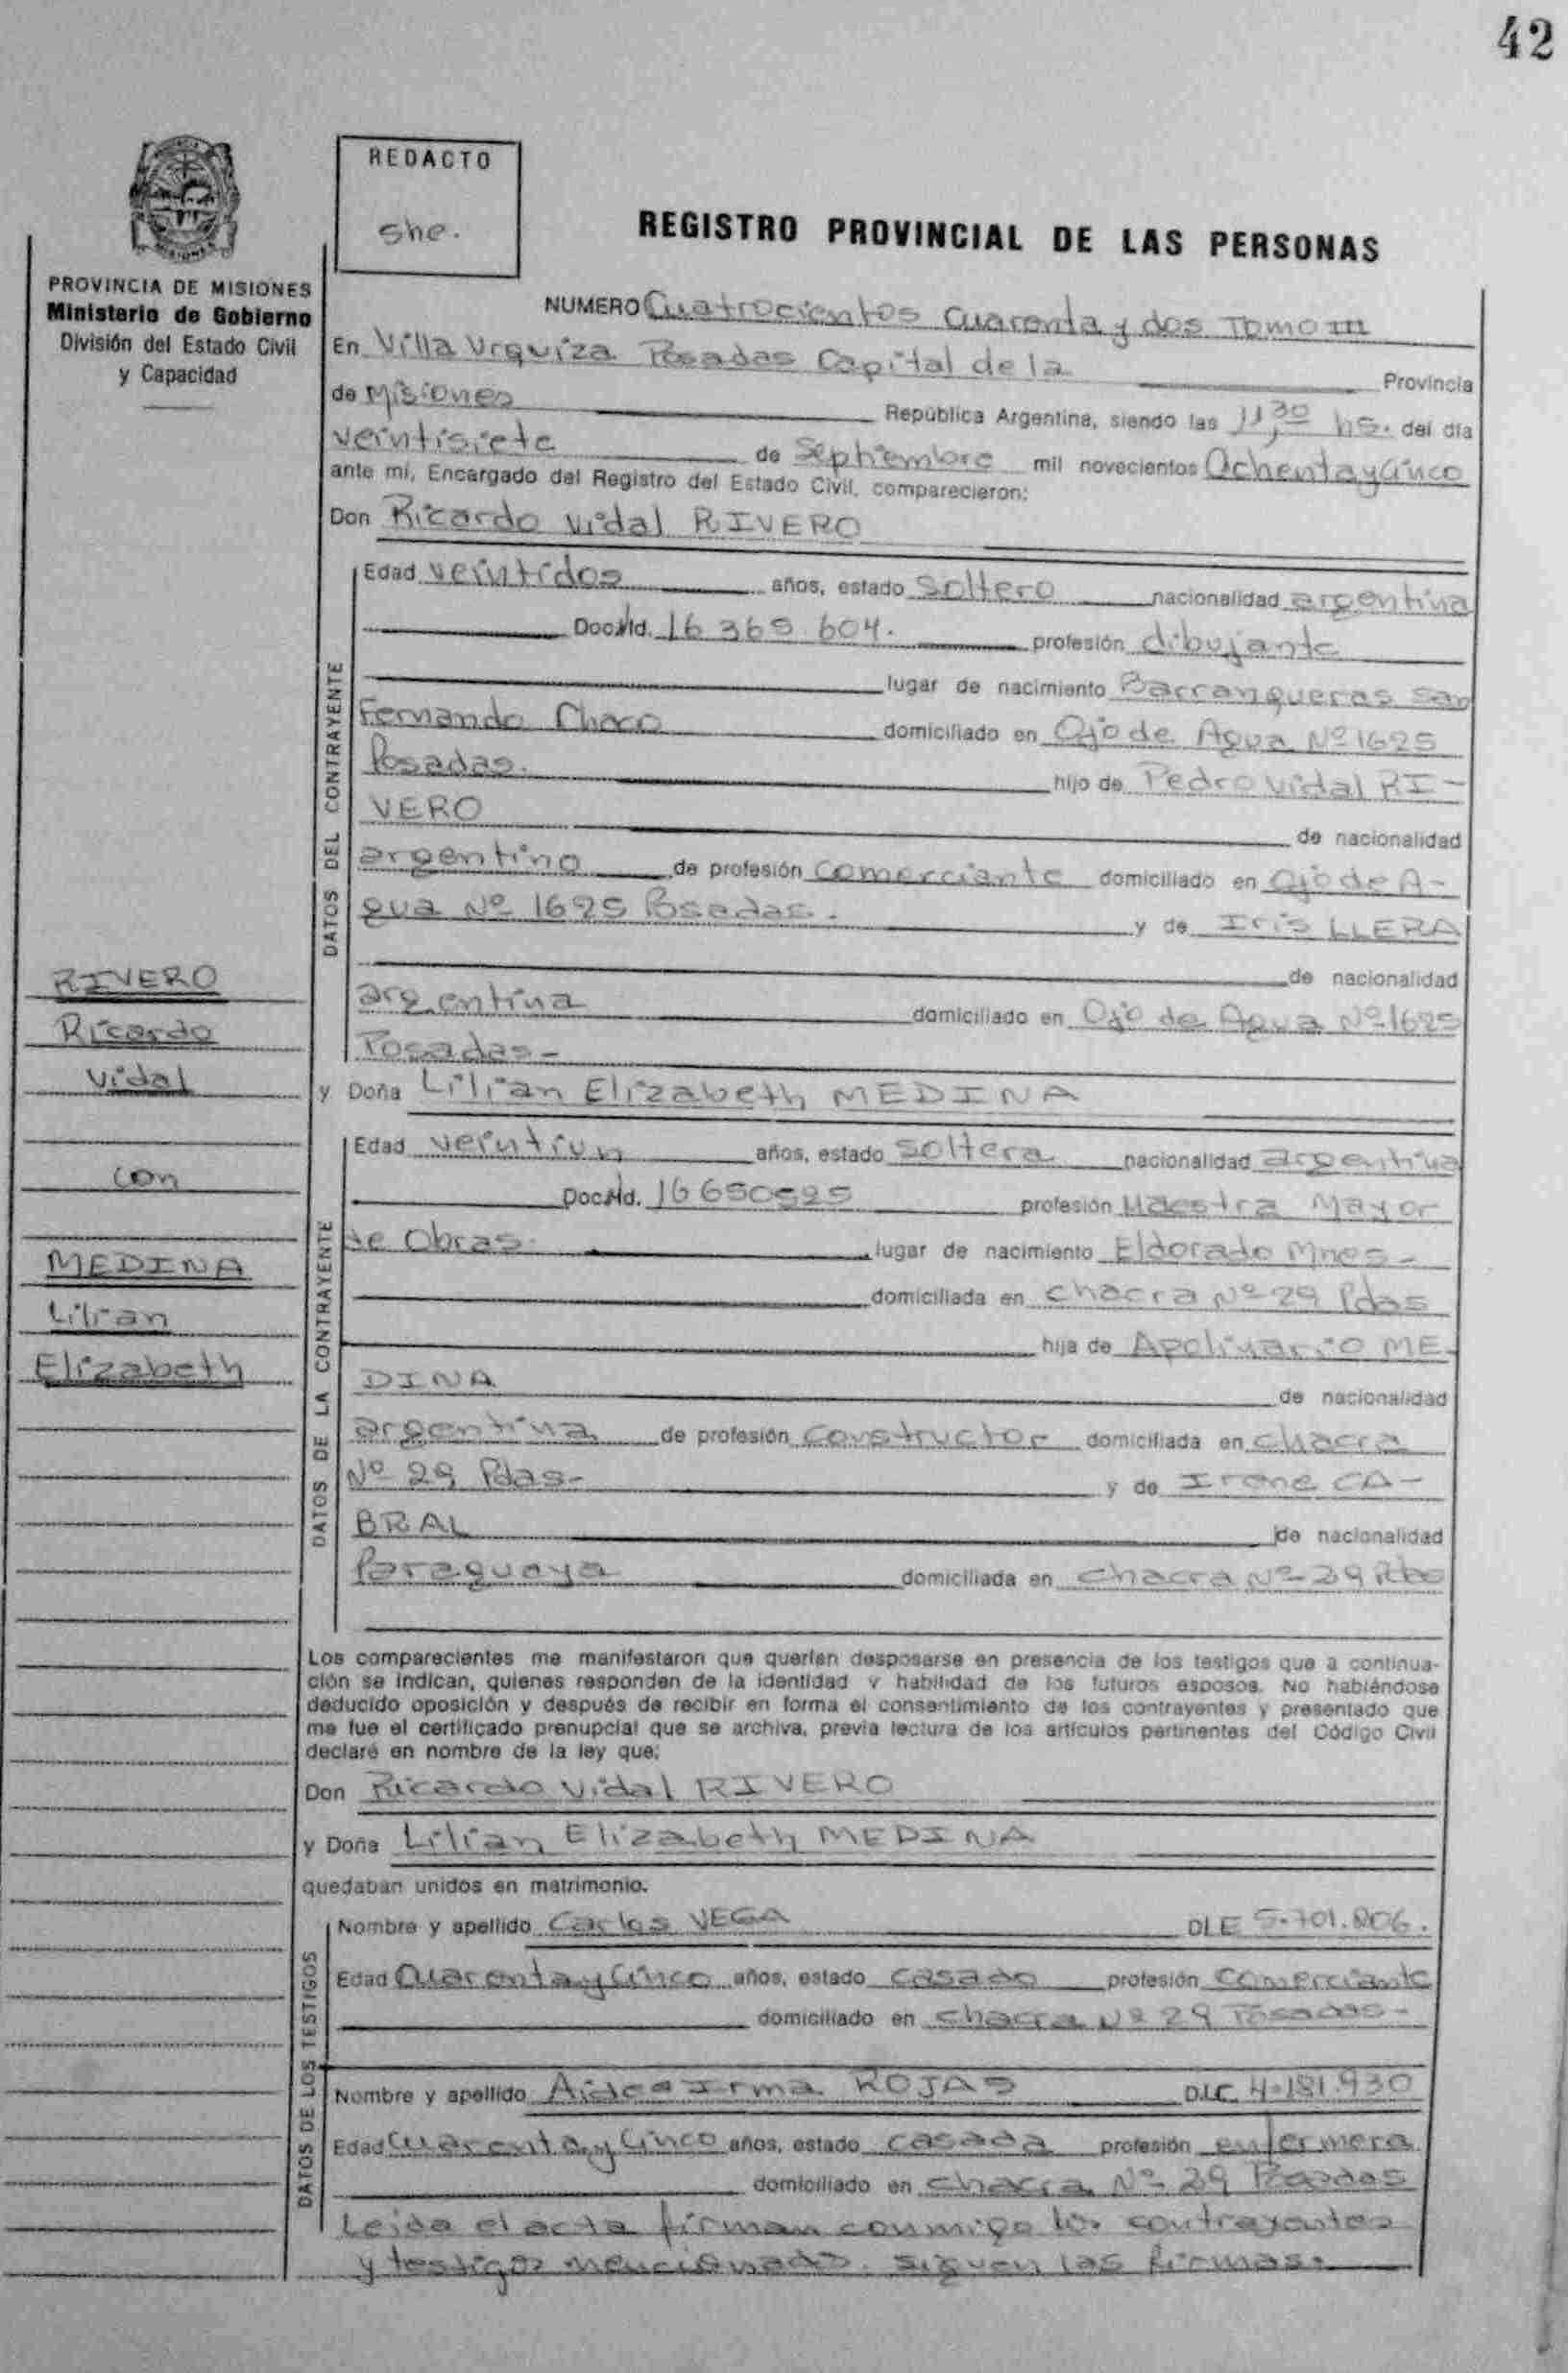 42
REDACTO
she.
REGISTRO PROVINCIAL DE LAS PERSONAS
PROVINCIA DE MISIONES
Ministerio de Gobierno
División del Estado Civil
y Capacidad
NUMERO Cuatrocientos Cuarenta y dos Tomo III
En Villa Urquiza Posadas Capital de la Provincia
de Misiones República Argentina, siendo las 11,30 hs. del día
veintisiete de Septiembre mil novecientos Ochenta y Cinco
ante mí, Encargado del Registro del Estado Civil, comparecieron:
Don Ricardo Vidal RIVERO
DATOS DEL CONTRAYENTE
Edad veintidos años, estado Soltero nacionalidad argentina
Doc. Id. 16 365 604. profesión dibujante
lugar de nacimiento Barranqueras San
Fernando Chaco domiciliado en Ojo de Agua Nº 1625
Posadas. hijo de Pedro Vidal RI-
VERO de nacionalidad
argentino de profesión Comerciante domiciliado en Ojo de A-
gua Nº 1625 Posadas. y de Iris LLERA
de nacionalidad
argentina domiciliado en Ojo de Agua Nº 1625
Posadas-
RIVERO
Ricardo
Vidal
con
MEDINA
Lilian
Elizabeth
y Doña Lilian Elizabeth MEDINA
DATOS DE LA CONTRAYENTE
Edad veintiun años, estado soltera nacionalidad argentina
Doc. Id. 16650525 profesión Maestra Mayor
de Obras. lugar de nacimiento Eldorado Mnes-
domiciliada en chacra Nº 29 Pdas
hija de Apolinario ME-
DINA de nacionalidad
argentina de profesión Constructor domiciliada en chacra
Nº 29 Pdas- y de Irene CA-
BRAL de nacionalidad
Paraguaya domiciliada en chacra Nº 29
Los comparecientes me manifestaron que querían desposarse en presencia de los testigos que a continua-
ción se indican, quienes responden de la identidad y habilidad de los futuros esposos. No habiéndose
deducido oposición y después de recibir en forma el consentimiento de los contrayentes y presentado que
me fue el certificado prenupcial que se archiva, previa lectura de los artículos pertinentes del Código Civil
declaré en nombre de la ley que:
Don Ricardo Vidal RIVERO
y Doña Lilian Elizabeth MEDINA
quedaban unidos en matrimonio.
DATOS DE LOS TESTIGOS
Nombre y apellido Carlos VEGA DI E 5.701.806.
Edad Cuarenta y Cinco años, estado casado profesión Comerciante
domiciliado en chacra Nº 29 Posadas-
Nombre y apellido Aidea Irma ROJAS D.I.C 4.181.930
Edad Cuarenta y Cinco años, estado casada profesión enfermera
domiciliado en chacra Nº 29 Posadas
Leida el acta firman conmigo los contrayentes
y testigos mencionados. siguen las firmas.